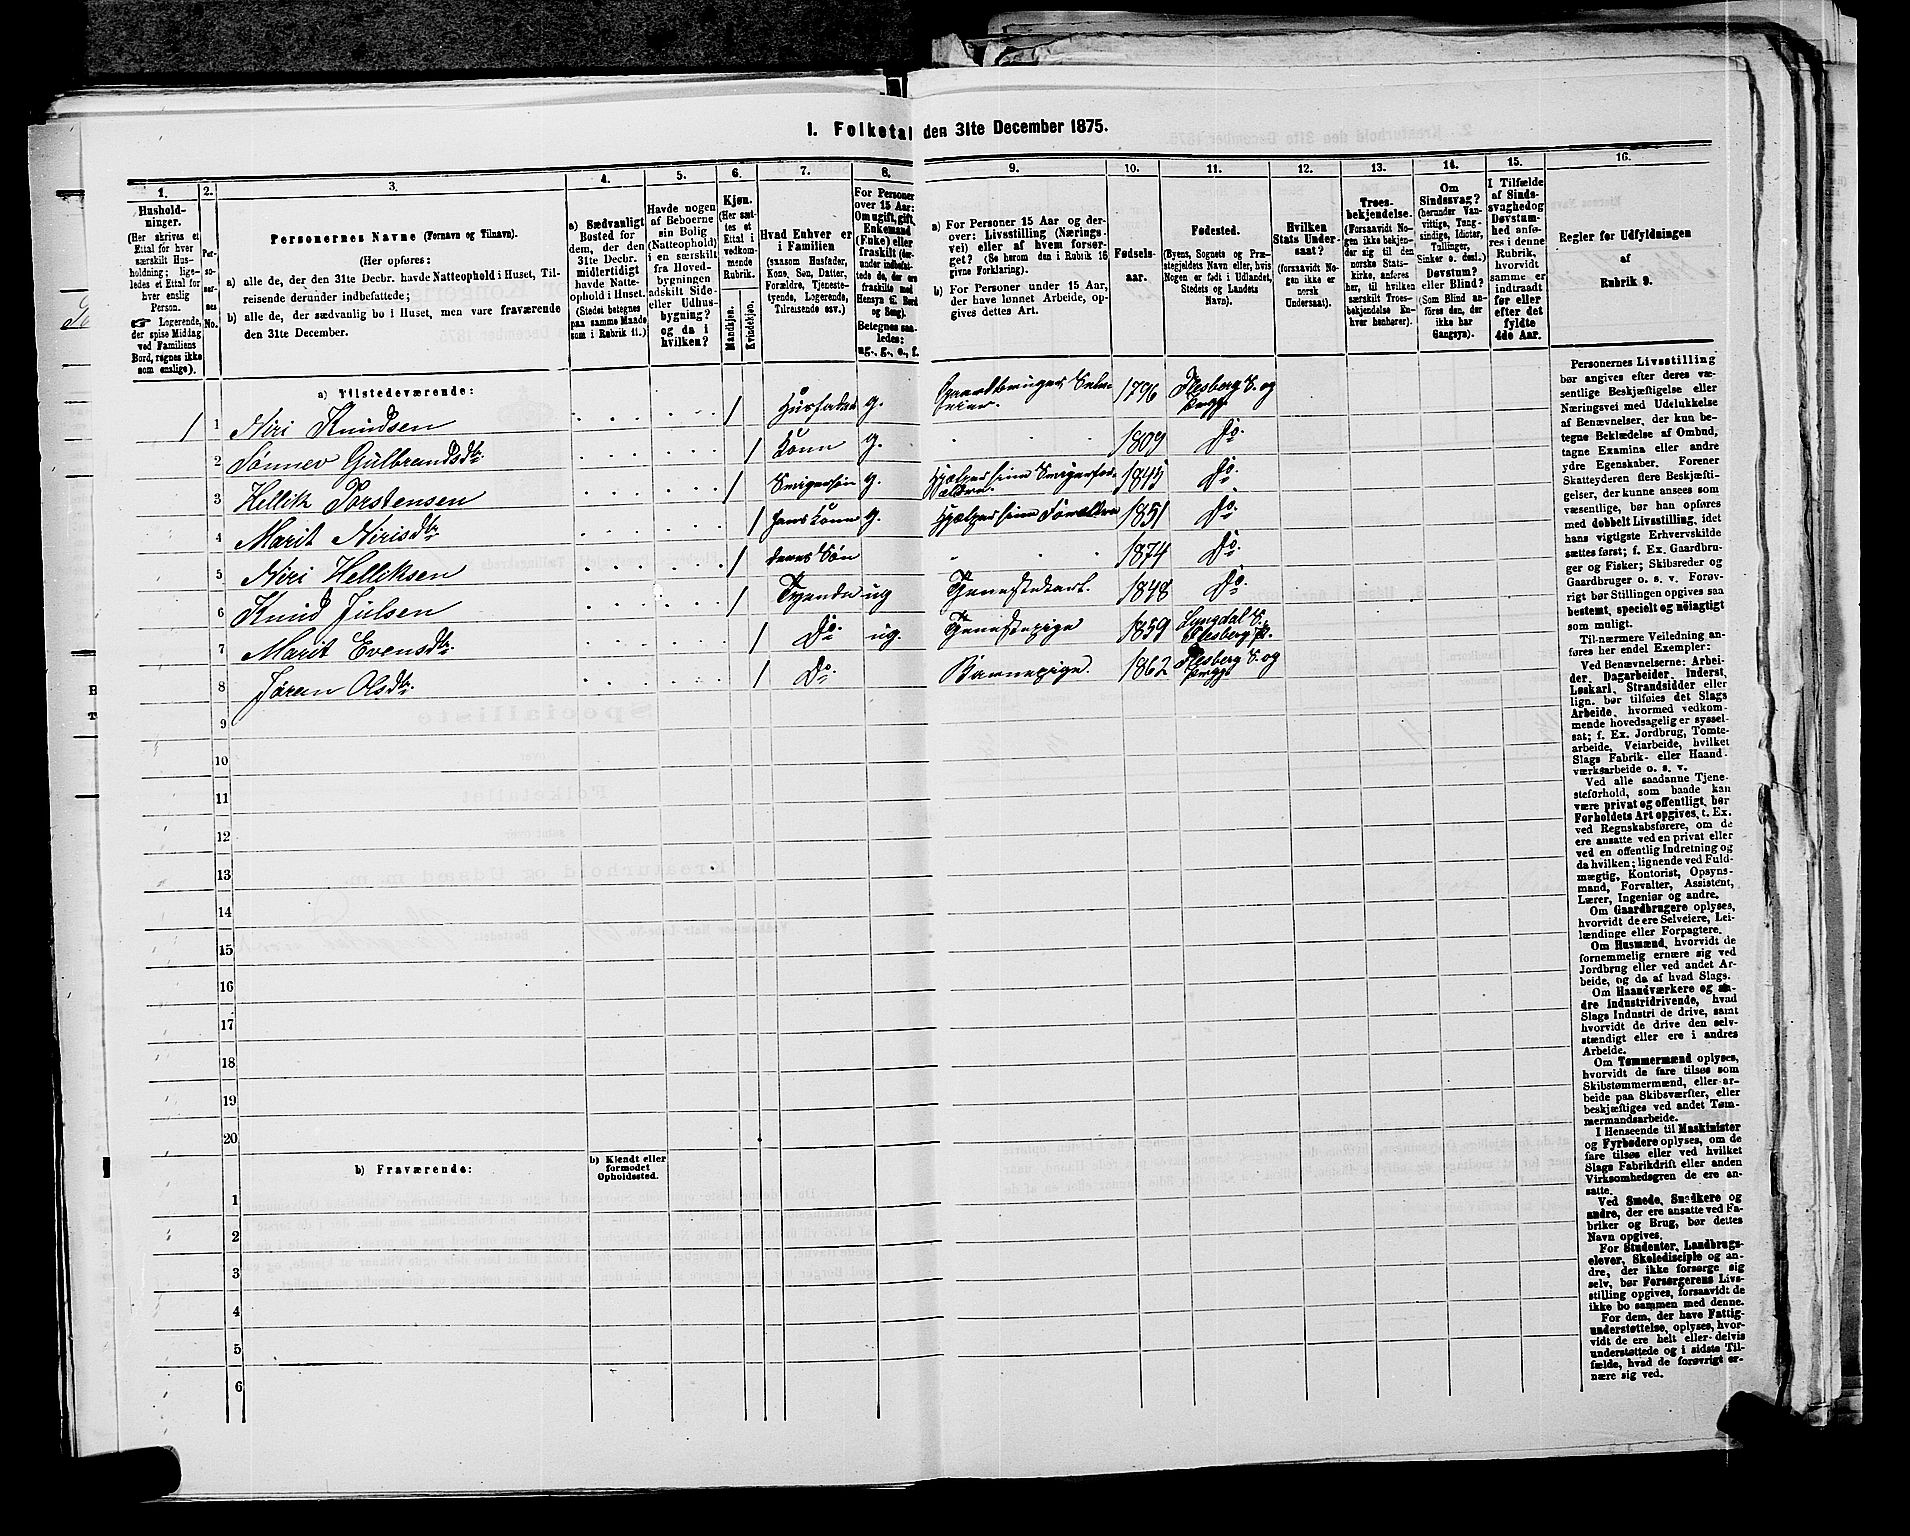 I. Folketal den 31te December 1875.
1.
2.
3.
4.
5.
6.
7.
8.
9.
10.
11.
12.
13.
14.
15.
16.
Hushold-
ninger.
(Her skrives et
Ettal for hver
særskilt Hus-
holdning; lige-
ledes et Ettal for
hver enslig
Person.
☞ Logerende,
der spise Middag
ved Familiens
Bord, regnes ikke
som enslige).
Per-
so-
ner-
nes
No.
Personernes Navne (Fornavn og Tilnavn).
(Her opføres:
a) alle de, der den 31te Decbr. havde Natteophold i Huset, Til-
reisende derunder indbefattede;
b) alle de, der sædvanlig bo i Huset, men vare fraværende
den 31te December.
a) Sædvanligt
Bosted for
dem, der den
31te Decbr.
midlertidigt
havde Natte-
ophold i Huset.
(Stedet betegnes
paa samme Maade
som i Rubrik 11.)
Havde nogen
af Beboerne
sin Bolig
(Natteophold)
i en særskilt
fra Hoved-
bygningen
adskilt Side-
eller Udhus-
bygning?
og da i
hvilken?
Kjøn.
(Her sæt-
tes et
Ettal i
vedkom-
mende
Rubrik.
Mandkjøn.
Kvindekjøn.
Hvad Enhver er
i Familien
(saasom Husfader,
Kone, Søn, Datter,
Forældre, Tjeneste-
tyende, Logerende,
Tilreisende osv.)
For Personer
over 15 Aar:
Om ugift, gift,
Enkemand
(Enke) eller
fraskilt (der-
under indbefat-
tede de, der ere
fraskilte med
Hensyn til Bord
og Seng).
Betegnes saa-
ledes:
ug., g., e., f.
a) For Personer 15 Aar og der-
over: Livsstilling (Nærings-
vei) eller af hvem forsør-
get? (Se herom den i Rubrik 16
givne Forklaring).
b) For Personer under 15 Aar,
der have lønnet Arbeide, op-
gives dettes Art.
Fødsels-
aar.
Fødested.
(Byens, Sognets og Præ-
stegjeldets Navn eller, hvis
Nogen er født i Udlandet,
Stedets og Landets
Navn).
Hvilken
Stats Under-
saat?
(forsaavidt No-
gen ikke er
norsk
Undersaat).
Troes-
bekjendelse.
(Forsaavidt No-
gen ikke bekjen-
der sig til den
norske Stats-
kirke, anføres
her, til hvilken
særskilt Troes-
bekjendelse En-
hver henhører).
Om
Sindssvag?
(herunder Van-
vittige, Tung-
sindige, Idioter,
Tullinger,
Sinker o. desl.)
Døvstum?
eller Blind?
(Som Blind an-
føres den, der
ikke har
Gangsyn).
I Tilfælde
af Sinds-
svaghed og
Døvstum-
hed anfø-
res i denne
Rubrik,
hvorvidt
samme er
indtraadt
før eller
efter det
fyldte
4de Aar.
Regler for Udfyldningen
af
Rubrik 9.
a) Tilstedeværende:
1 1 Niri Knudsen 1 Husfader g. Gaardbruger Selv-
eier. 1796 Flesberg S. og
Prgj
2 Sønnev Gulbrandsdtr 1 Kone g. 1809 Do
3 Hellik Torstensen 1 Svigersøn g. Hjælper sine Svigerfor-
ældre. 1845 Do
4 Marit Nirisdtr 1 hans Kone g. Hjælper sine Forældre 1851 Do
5 Niri Helliksen 1 deres Søn 1874 Do
6 Knud Juelsen 1 Tyende ug Tjenestekarl. 1848 Do
7 Marit Evensdtr. 1 Do ug. Tjenestepige 1859 Lyngdal S.
Flesberg P.
8 Jøran Olsdtr 1 Do Barnepige. 1862 Flesberg S. og
Prgj
9
10
11
12
13
14
15
16
17
18
19
20
b) Fraværende:
b) Kjendt eller
formodet
Opholdssted.
1
2
3
4
5
6
Personernes Livsstilling
bør angives efter deres væ-
sentlige Beskjæftigelse eller
Næringsvei med Udelukkelse
af Benævnelser, der kun be-
tegne Beklædelse af Ombud,
tagne Examina eller andre
ydre Egenskaber. Forener
Skatteyderen flere Beskjæfti-
gelser, der kunne ansees som
væsentlige, bør han opføres
med dobbelt Livsstilling, idet
hans vigtigste Erhvervskilde
sættes først; f. Ex. Gaardbru-
ger og Fisker; Skibsreder og
Gaardbruger o. s. v. Forøv-
rigt bør Stillingen opgives saa
bestemt, specielt og nøiagtigt
som muligt.
Til nærmere Veiledning an-
føres her endel Exempler:
Ved Benævnelserne: Arbei-
der, Dagarbeider, Inderst,
Løskarl, Strandsidder eller
lign. bør tilføies det Slags
Arbeide, hvormed vedkom-
mende hovedsagelig er syssel-
sat; f. Ex. Jordbrug, Tomte-
arbeide, Veiarbeide, hvilket
Slags Fabrik- eller Haand-
værksarbeide o. s. v.
Ved alle saadanne Tjene-
steforhold, som baade kan
være privat og offentligt, bør
Forholdets Art opgives, t. Ex.
ved Regnskabsførere, om de
ere ansatte ved en privat eller
ved en offentlig Indretning og
da hvilken; lignende ved Fuld-
mægtig, Kontorist, Opsyns-
mand, Forvalter, Assistent,
Lærer, Ingeniør og andre.
Om Gaardbrugere oplyses,
hvorvidt de ere Selveiere, Lei-
lændinge eller Forpagtere.
Om Husmænd, hvorvidt de
fornemmelig ernære sig ved
Jordbrug eller ved andet Ar-
beide, og da af hvad Slags.
Om Haandværkere og an-
dre Industridrivende, hvad
Slags Industri de drive, samt
hvorvidt de drive den selv-
stændigt eller ere i andres
Arbeide.
Om Tømmermænd oplyses,
hvorvidt de fare tilsøs som
Skibstømmermænd, eller ar-
beide paa Skibsværfter, eller
beskjæftiges ved andet Tøm-
mermandsarbeide.
I Henseende til Maskinister
og Fyrbødere oplyses, om de
fare tilsøs eller ved hvilket
Slags Fabrikdrift eller anden
Virksomhedsgren de ere an-
satte.
Ved Smede, Snedkere og
andre, der ere ansatte ved Fa-
briker og Brug, bør dettes
Navn opgives.
For Studenter, Landbrugs-
elever, Skoledisciple og an-
dre, der ikke forsørge sig
selv, bør Forsørgerens Livs-
stilling opgives, forsaavidt de
ikke bo sammen med denne.
For dem, der have Fattig-
understøttelse, oplyses, hvor-
vidt de ere helt eller delvis
understøttede og i sidste Til-
fælde, hvad de forøvrigt er-
nære sig ved.